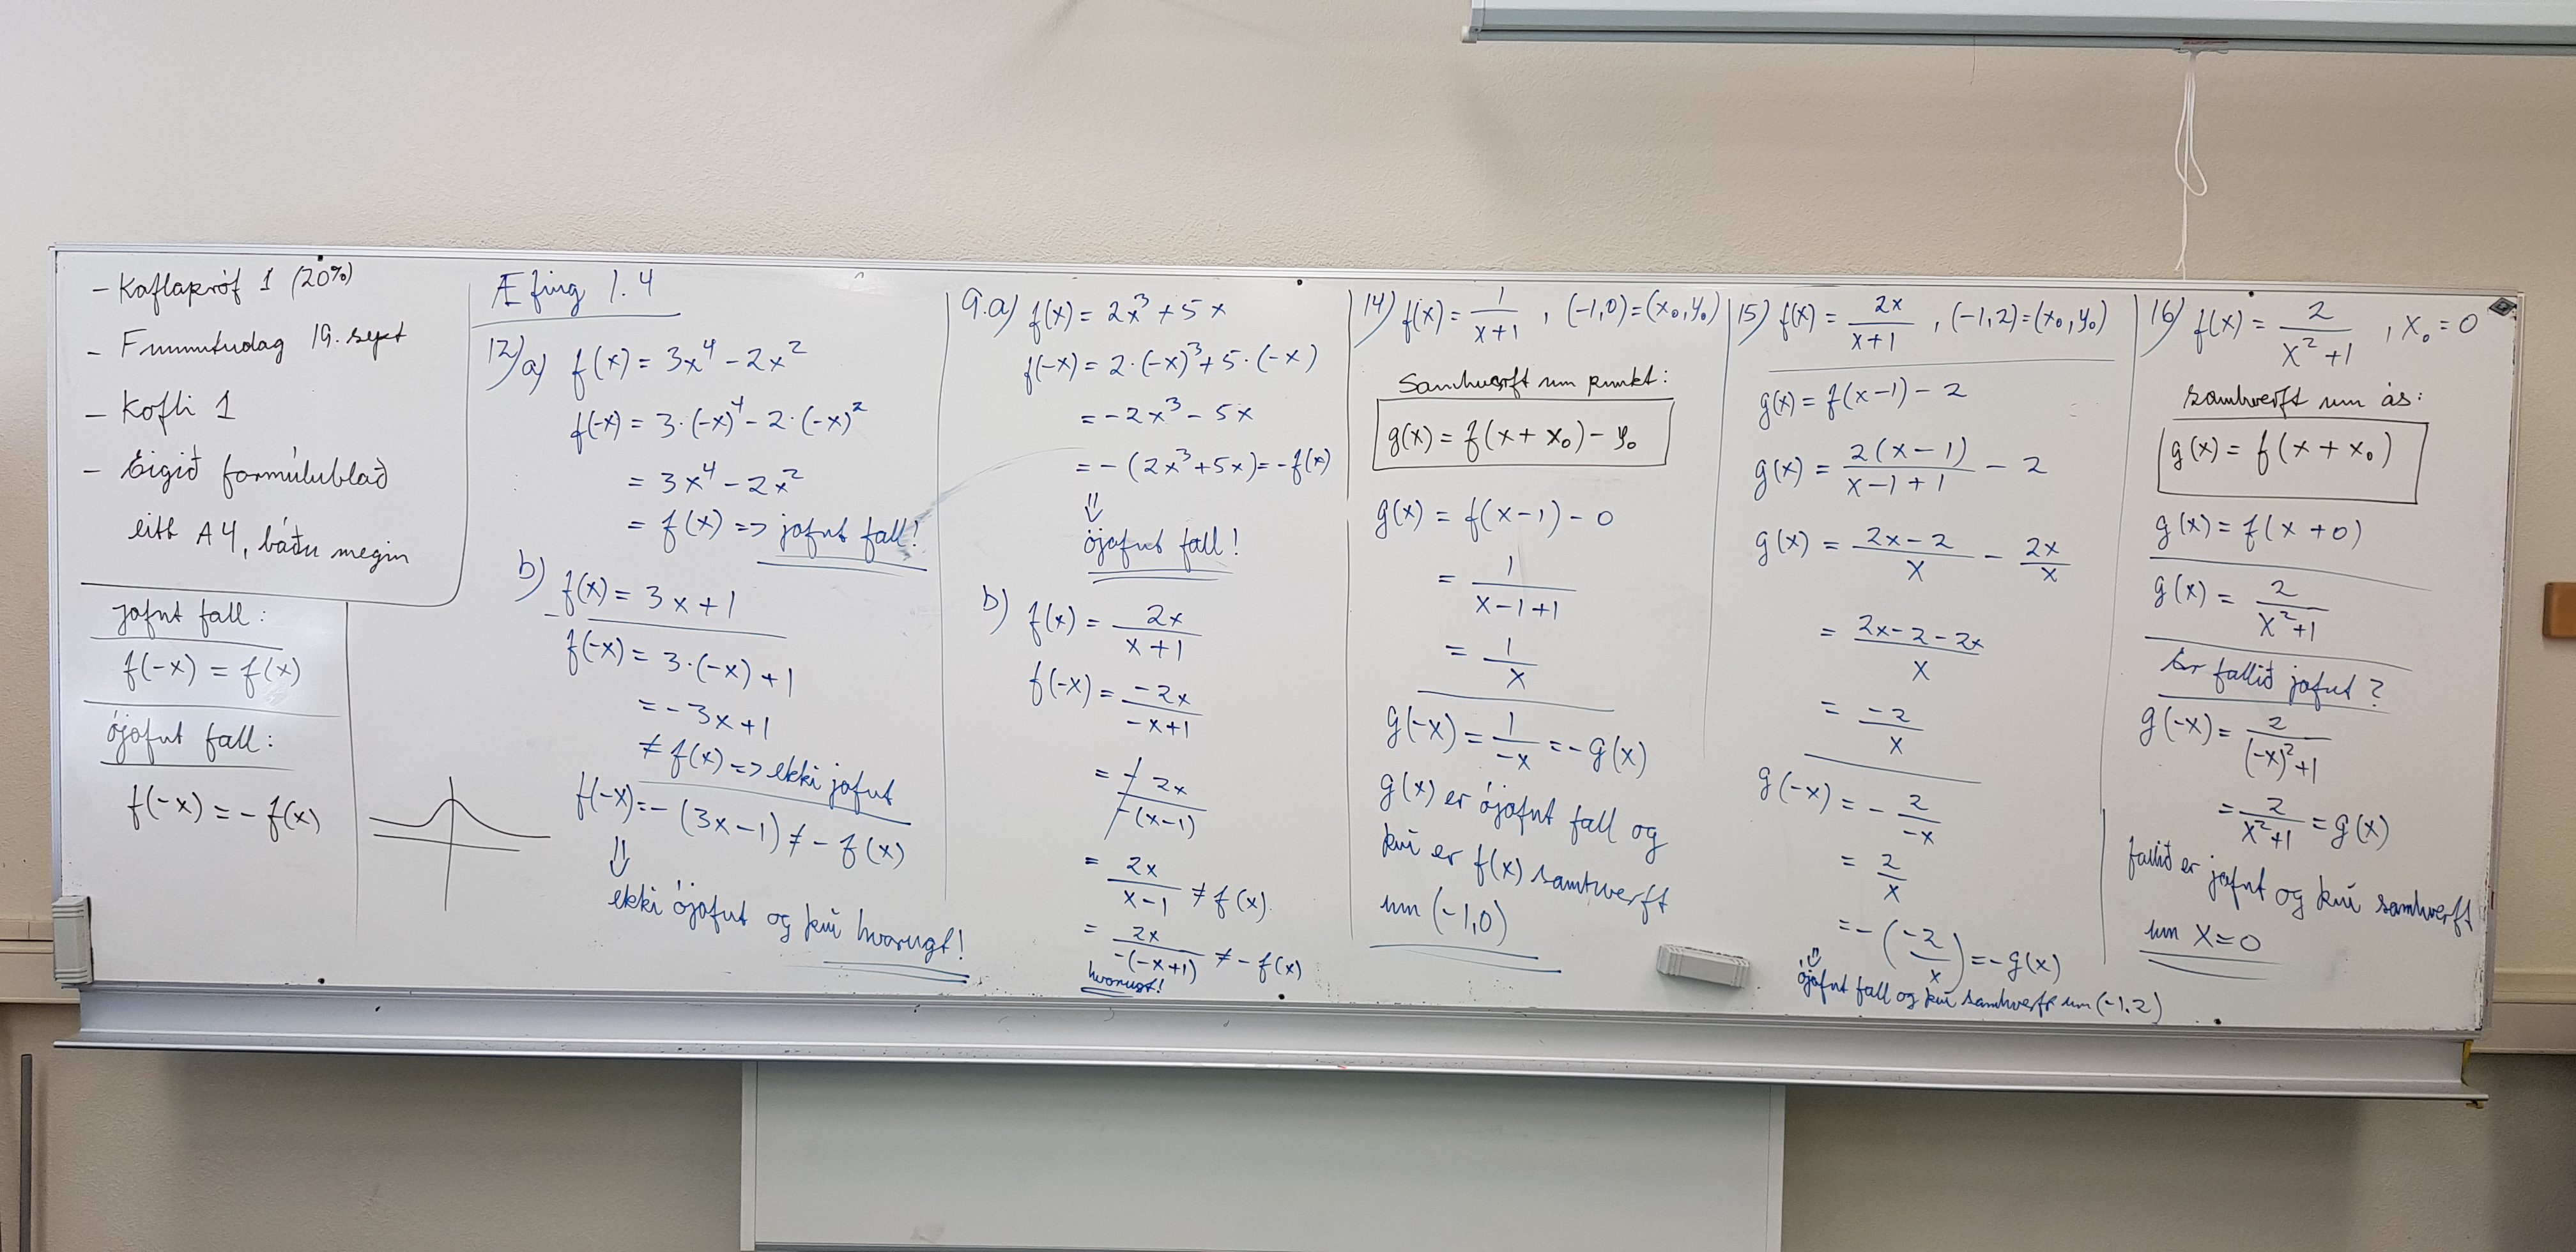 - Kaflapróf 1 (20%)
- Fimmtudag 19. sept
- Kafli 1
- Eigið formúlublað
eitt A4, báðu megin
jafnt fall:
f(-x) = f(x)
ójafnt fall:
f(-x) = - f(x)
Æfing 1.4
12) a) f(x) = 3x⁴ - 2x²
f(-x) = 3·(-x)⁴ - 2·(-x)²
= 3x⁴ - 2x²
= f(x) => jafnt fall!
b) f(x) = 3x + 1
f(-x) = 3·(-x) + 1
= -3x + 1
≠ f(x) => ekki jafnt
f(-x) = - (3x - 1) ≠ - f(x)
⇓
ekki ójafnt og því hvorugt!
9.a) f(x) = 2x³ + 5x
f(-x) = 2·(-x)³ + 5·(-x)
= -2x³ - 5x
= - (2x³ + 5x) = -f(x)
⇓
ójafnt fall!
b) f(x) = 2x/(x+1)
f(-x) = -2x/(-x+1)
= -2x/-(x-1)
= 2x/(x-1) ≠ f(x)
= 2x/-(-x+1) ≠ - f(x)
hvorugt!
14) f(x) = 1/(x+1) , (-1,0) = (x₀,y₀)
Samhverft um punkt:
g(x) = f(x + x₀) - y₀
g(x) = f(x-1) - 0
= 1/(x-1+1)
= 1/x
g(-x) = 1/-x = - g(x)
g(x) er ójafnt fall og
því er f(x) samhverft
um (-1,0)
15) f(x) = 2x/(x+1) , (-1,2) = (x₀,y₀)
g(x) = f(x-1) - 2
g(x) = 2(x-1)/(x-1+1) - 2
g(x) = (2x-2)/x - 2x/x
= (2x-2-2x)/x
= -2/x
g(-x) = - 2/-x
= 2/x
= - (-2/x) = - g(x)
⇓
ójafnt fall og því samhverft um (-1,2)
16) f(x) = 2/(x²+1) , x₀ = 0
samhverft um ás:
g(x) = f(x + x₀)
g(x) = f(x + 0)
g(x) = 2/(x²+1)
Er fallið jafnt?
g(-x) = 2/((-x)²+1)
= 2/(x²+1) = g(x)
fallið er jafnt og því samhverft
um x = 0